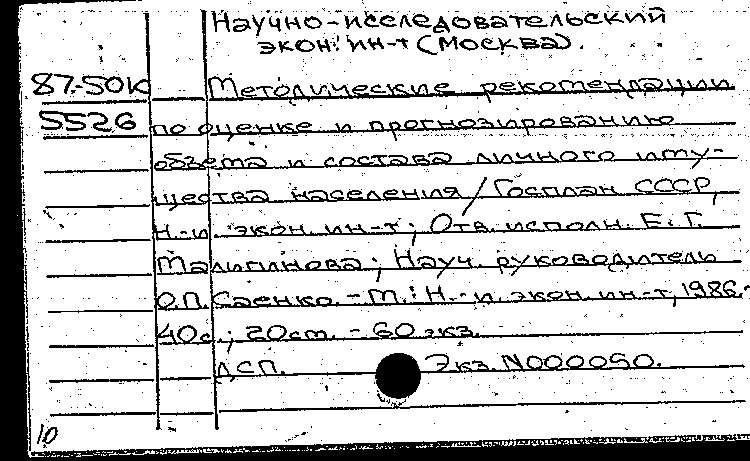 Научно-исследовательский
экон. ин-т (Москва).
87-50К Методические рекомендации
5526 по оценке и прогнозированию
объема и состава личного иму-
щества населения / Госплан СССР,
Н.-и. экон. ин-т; Отв. исполн. Е. Г.
Малигинова; Науч. руководитель
О.П. Саенко. - М.: Н.-и. экон. ин-т, 1986.-
40с.; 20см. - 60 экз.
ДСП. Экз. N000050.
10